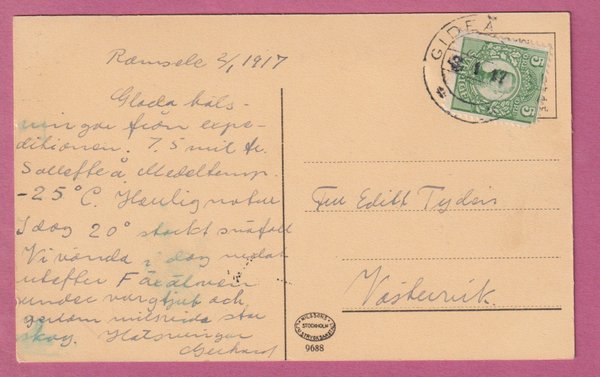 Ramsele 2/1 1917
Glada häls-
ningar från expe-
ditionen. 7.5 mil fr.
Sollefteå Medeltemp.
-25°C. Härlig natur
I dag 20° starkt snöfall
Vi vända i dag nedåt
utefter
under vargtjut och
genom milsvida stor
skog. Hälsningar
Gerhard
GIDEÅ
1 17
5
5
Till Edith
Västervik.
NILSSONS
STOCKHOLM
9688